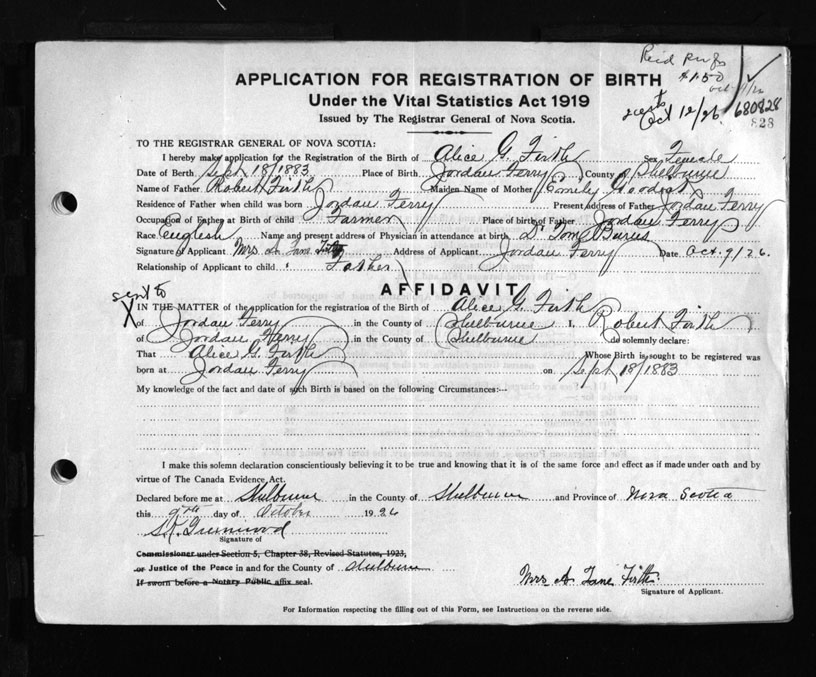 $1.50
APPLICATION FOR REGISTRATION OF BIRTH
Under the Vital Statistics Act 1919
Issued by The Registrar General of Nova Scotia.
Oct 12/26
680828
828
TO THE REGISTRAR GENERAL OF NOVA SCOTIA:
I hereby make application for the Registration of the Birth of Alice G. Firth Sex Female
Date of Birth Sept 18/1883 Place of Birth Jordan Ferry County of Shelburne
Name of Father Robert Firth Maiden Name of Mother Emily
Residence of Father when child was born Jordan Ferry Present Address of Father Jordan Ferry
Occupation of Father at Birth of child Farmer Place of birth of Father Jordan Ferry
Race English Name and present address of Physician in attendance at birth Dr Tom Burns
Signature of Applicant Mrs A Jane Firth Address of Applicant Jordan Ferry Date Oct. 9/26.
Relationship of Applicant to child Father
AFFIDAVIT
sent to
X IN THE MATTER of the application for the registration of the Birth of Alice G. Firth
of Jordan Ferry in the County of Shelburne I, Robert Firth
of Jordan Ferry in the County of Shelburne do solemnly declare:
That Alice G. Firth Whose Birth is sought to be registered was
born at Jordan Ferry on Sept 18/1883
My knowledge of the fact and date of such Birth is based on the following Circumstances:--
I make this solemn declaration conscientiously believing it to be true and knowing that it is of the same force and effect as if made under oath and by
virtue of The Canada Evidence Act.
Declared before me at Shelburne in the County of Shelburne and Province of Nova Scotia
this 9th day of October 1926
Signature of
Commissioner under Section 5, Chapter 38, Revised Statutes, 1923,
or Justice of the Peace in and for the County of Shelburne
If sworn before a Notary Public affix seal.
Mrs A Jane Firth
Signature of Applicant.
For Information respecting the filling out of this Form, see Instructions on the reverse side.